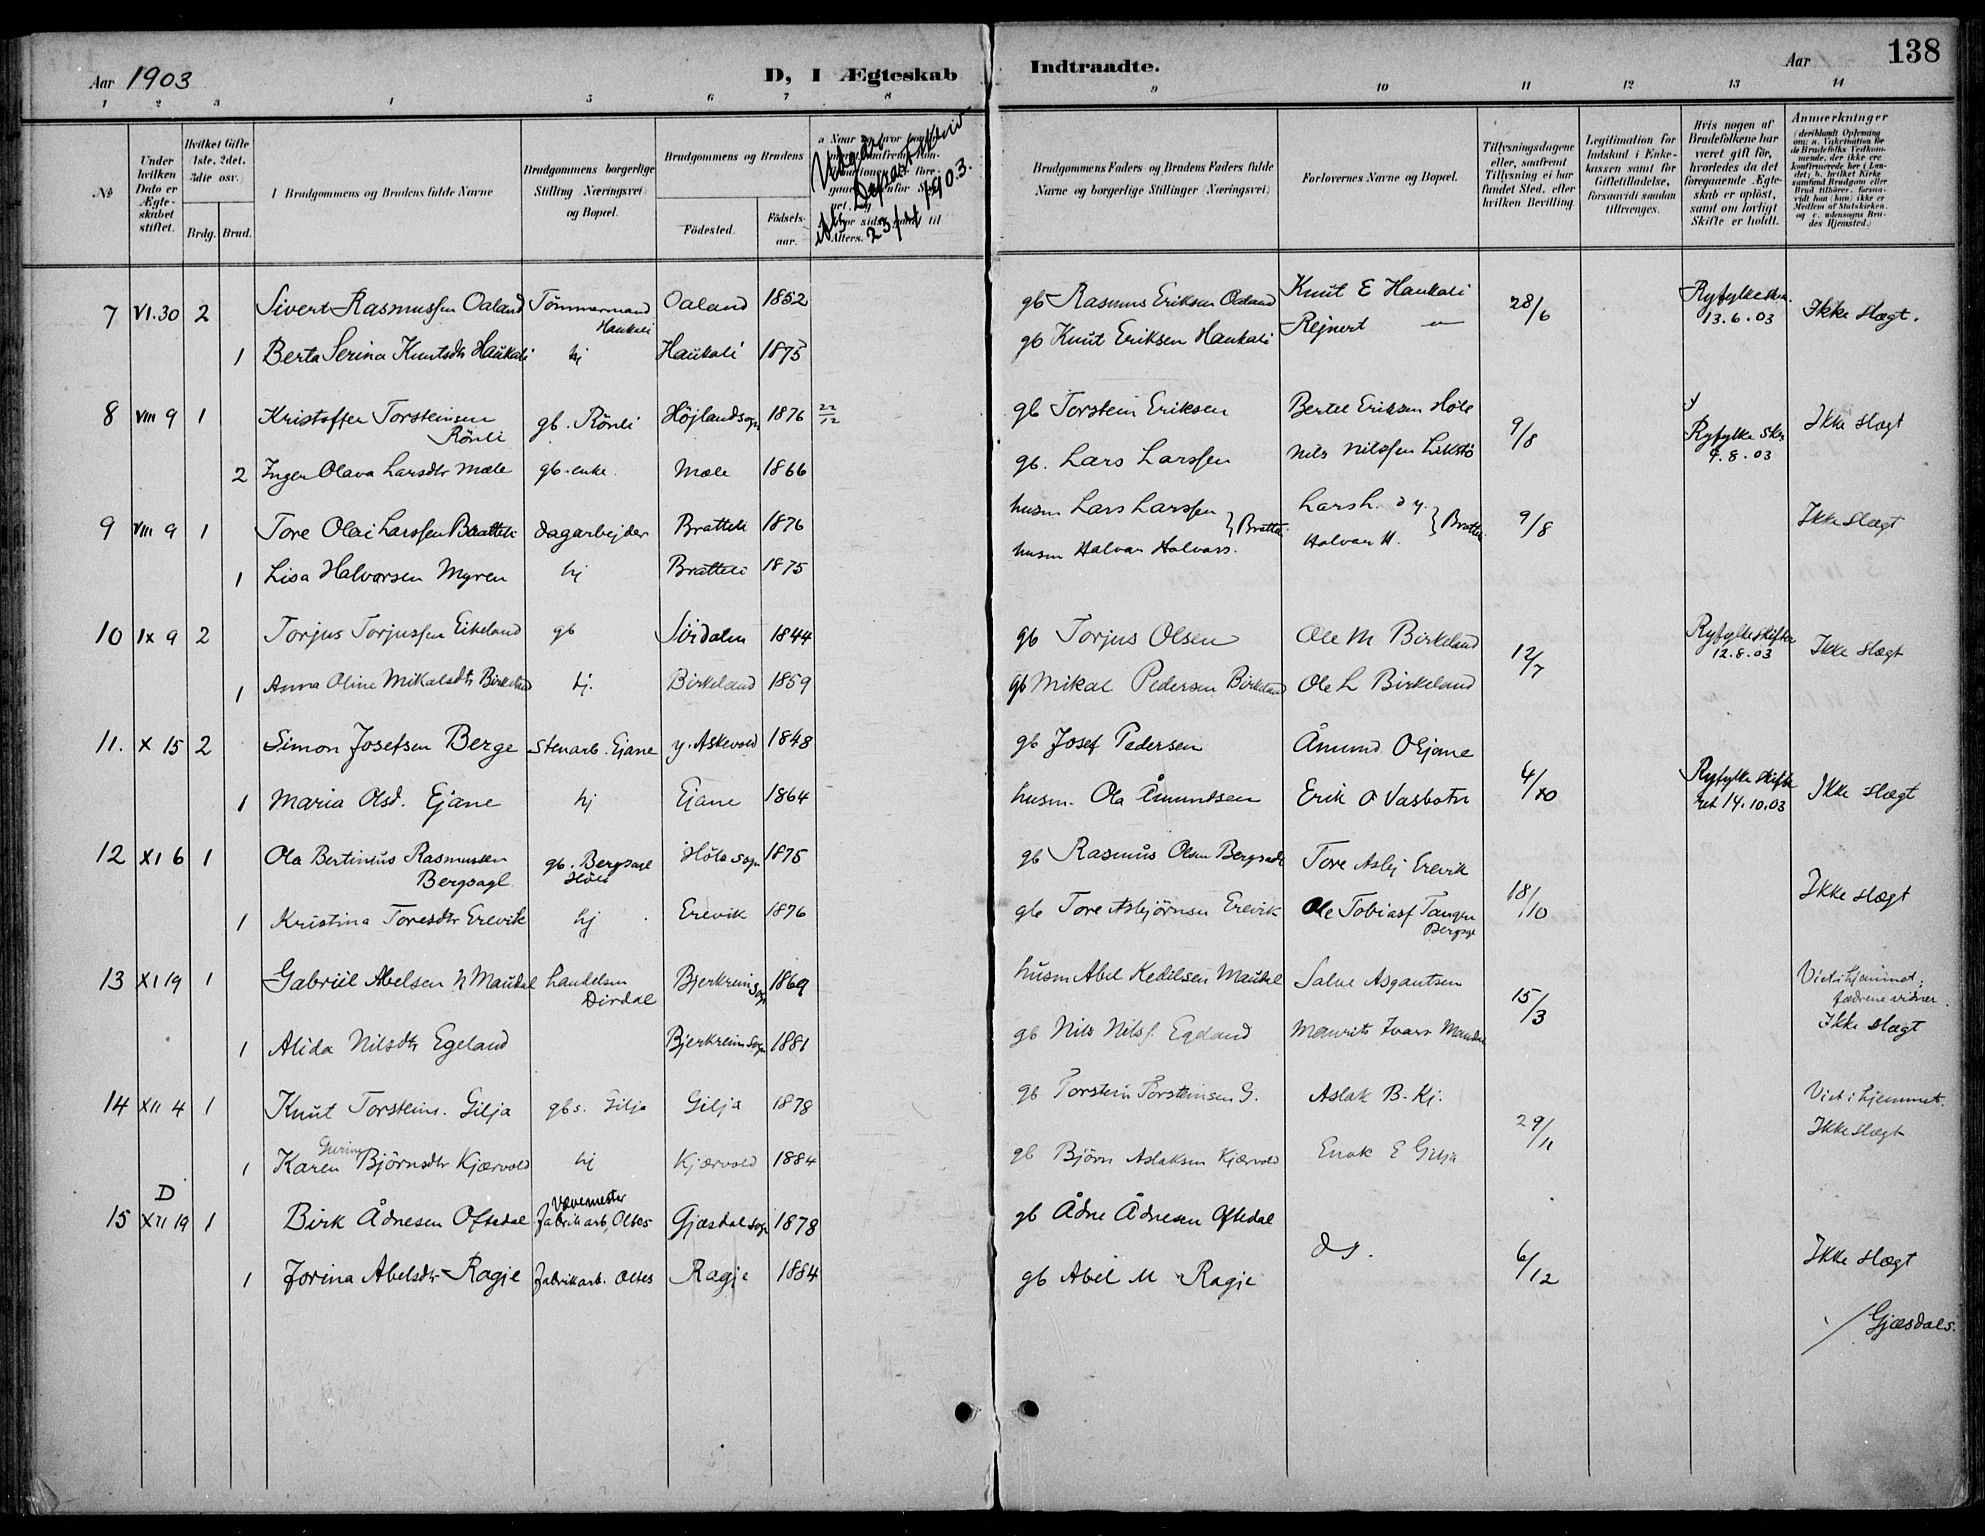 Aar 1903
D, I Ægteskab
Indtraadte.
Aar
138
1 2 3 4 5 6 7 8 9 10 11 12 13 14
№
Under hvilken Dato er Ægteskabet stiftet.
Hvilket Gifte 1ste, 2det, 3die osv.)
Brdg. Brud.
Brudgommens og Brudens fulde Navne
Brudgommens borgerlige Stilling (Næringsvei) og Bopæl.
Brudgommens og Brudens
Fødested.
Fødselsaar.
Departskriv
23 febr 1903.
Brudgommens Faders og Brudens Faders fulde Navne og borgerlige Stillinger (Næringsvei)
Forlovernes Navne og Bopæl.
Tillysningsdagene eller, saafremt Tillysning ei har fundet Sted, efter hvilken Bevilling.
Legitimation for Indskud i Enkekassen samt for Giftetilladelse, forsaavidt saadan tiltrænges.
Hvis nogen af Brudefolkene har været gift før, hvorledes da det foregaaende Ægteskab er opløst, samt om lovligt Skifte er holdt.
Anmærkninger
7 VI.30 2 Sivert Rasmussen Oaland Tømmermand Haukali Oaland 1852 gb Rasmus Eriksen Oaland Knut E Haukali 28/6 Ryfylke skr. 13.6.03 Ikke slægt.
1 Berta Serina Knutsdtr Haukali hj Haukali 1875 gb Knut Eriksen Haukali Rejnert — " —
8 VIII 9 1 Kristoffer Torsteinsen Rönli gb. Rönli Höjlandsogn 1876 22/12 gb Torstein Eriksen Bertel Eriksen Höle 9/8 Ryfylke Skr 4.8.03 Ikke slægt
2 Inger Olava Larsdtr Mæle gb. enke Mæle 1866 gb. Lars Larssen Nils Nilssen
9 VIII 9 1 Tore Olai Larssen Bratteli dagarbejder Bratteli 1876 husm Lars Larssen } Bratteli Lars L. } Bratteli 9/8 Ikke slægt
1 Lisa Halvorsen Myren hj Bratteli 1875 husm Halvor Halvors. Halvor H.
10 IX 9 2 Torjus Torjussen Eikeland gb Sördalen 1844 gb Torjus Olsen Ole M Birkeland 12/7 Ryfylke skifter 12.8.03 Ikke slægt
1 Anna Oline Mikalsdtr Birkeland hj. Birkeland 1859 gb Mikal Pedersen Birkeland Ole L Birkeland
11. X 15 2 Simon Josefsen Berge Stenarb. Ejane y. Askevold 1848 gb Josef Pedersen Åmund O Ejane
1 Maria Olsd. Ejane hj Ejane 1864 husm. Ola Åmundsen Erik O Vasbotn 4/10 Ryfylke skifteret 14.10.03 Ikke slægt
12 XI 6 1 Ola Bertinius Rasmussen Bergsagl gb. Bergsagl Höle Höle sogn 1875 gb Rasmus Olsen Bergsagl Tore Asbj Erevik 18/10 Ikke slægt
1 Kristina Toresdtr Erevik hj Erevik 1876 gb Tore Asbjörnsen Erevik Ole Tobiasf Tangen
13 XI 19 1 Gabriel Abelsen Maudal handelsm Dirdal Bjerkreim sogn 1869 husm Abel Kedilsen Maudal Salve Asgautsen 15/3 Viet i hjemmet; fædrene vidner.
1 Alida Nilsdtr Egeland Bjerkreim sogn 1881 gb Nils Nilsf. Egeland Maurits Ivars Maudal Ikke slægt
14 XII 4 1 Knut Torsteins. Gilja gbs. Gilja Gilja 1878 gb Torstein Torsteinsen G. Aslak B. Kj. 29/11 Viet i hjemmet.
1 Karen Gurine Björnsdtr Kjærvold hj Kjærvold 1884 gb Björn Aslaksen Kjærvold Enok E Gilja Ikke slægt
15 D XII 19 1 Birk Ådnesen Oftedal Vævemester fabrikarb, Oltes Gjæsdal sogn 1878 gb Ådne Ådnesen Oftedal
1 Jorina Abelsdtr Ragje fabrikarb. Oltes Ragje 1884 gb Abel M Ragje ds. 6/12 Ikke slægt
/ Gjæsdals.